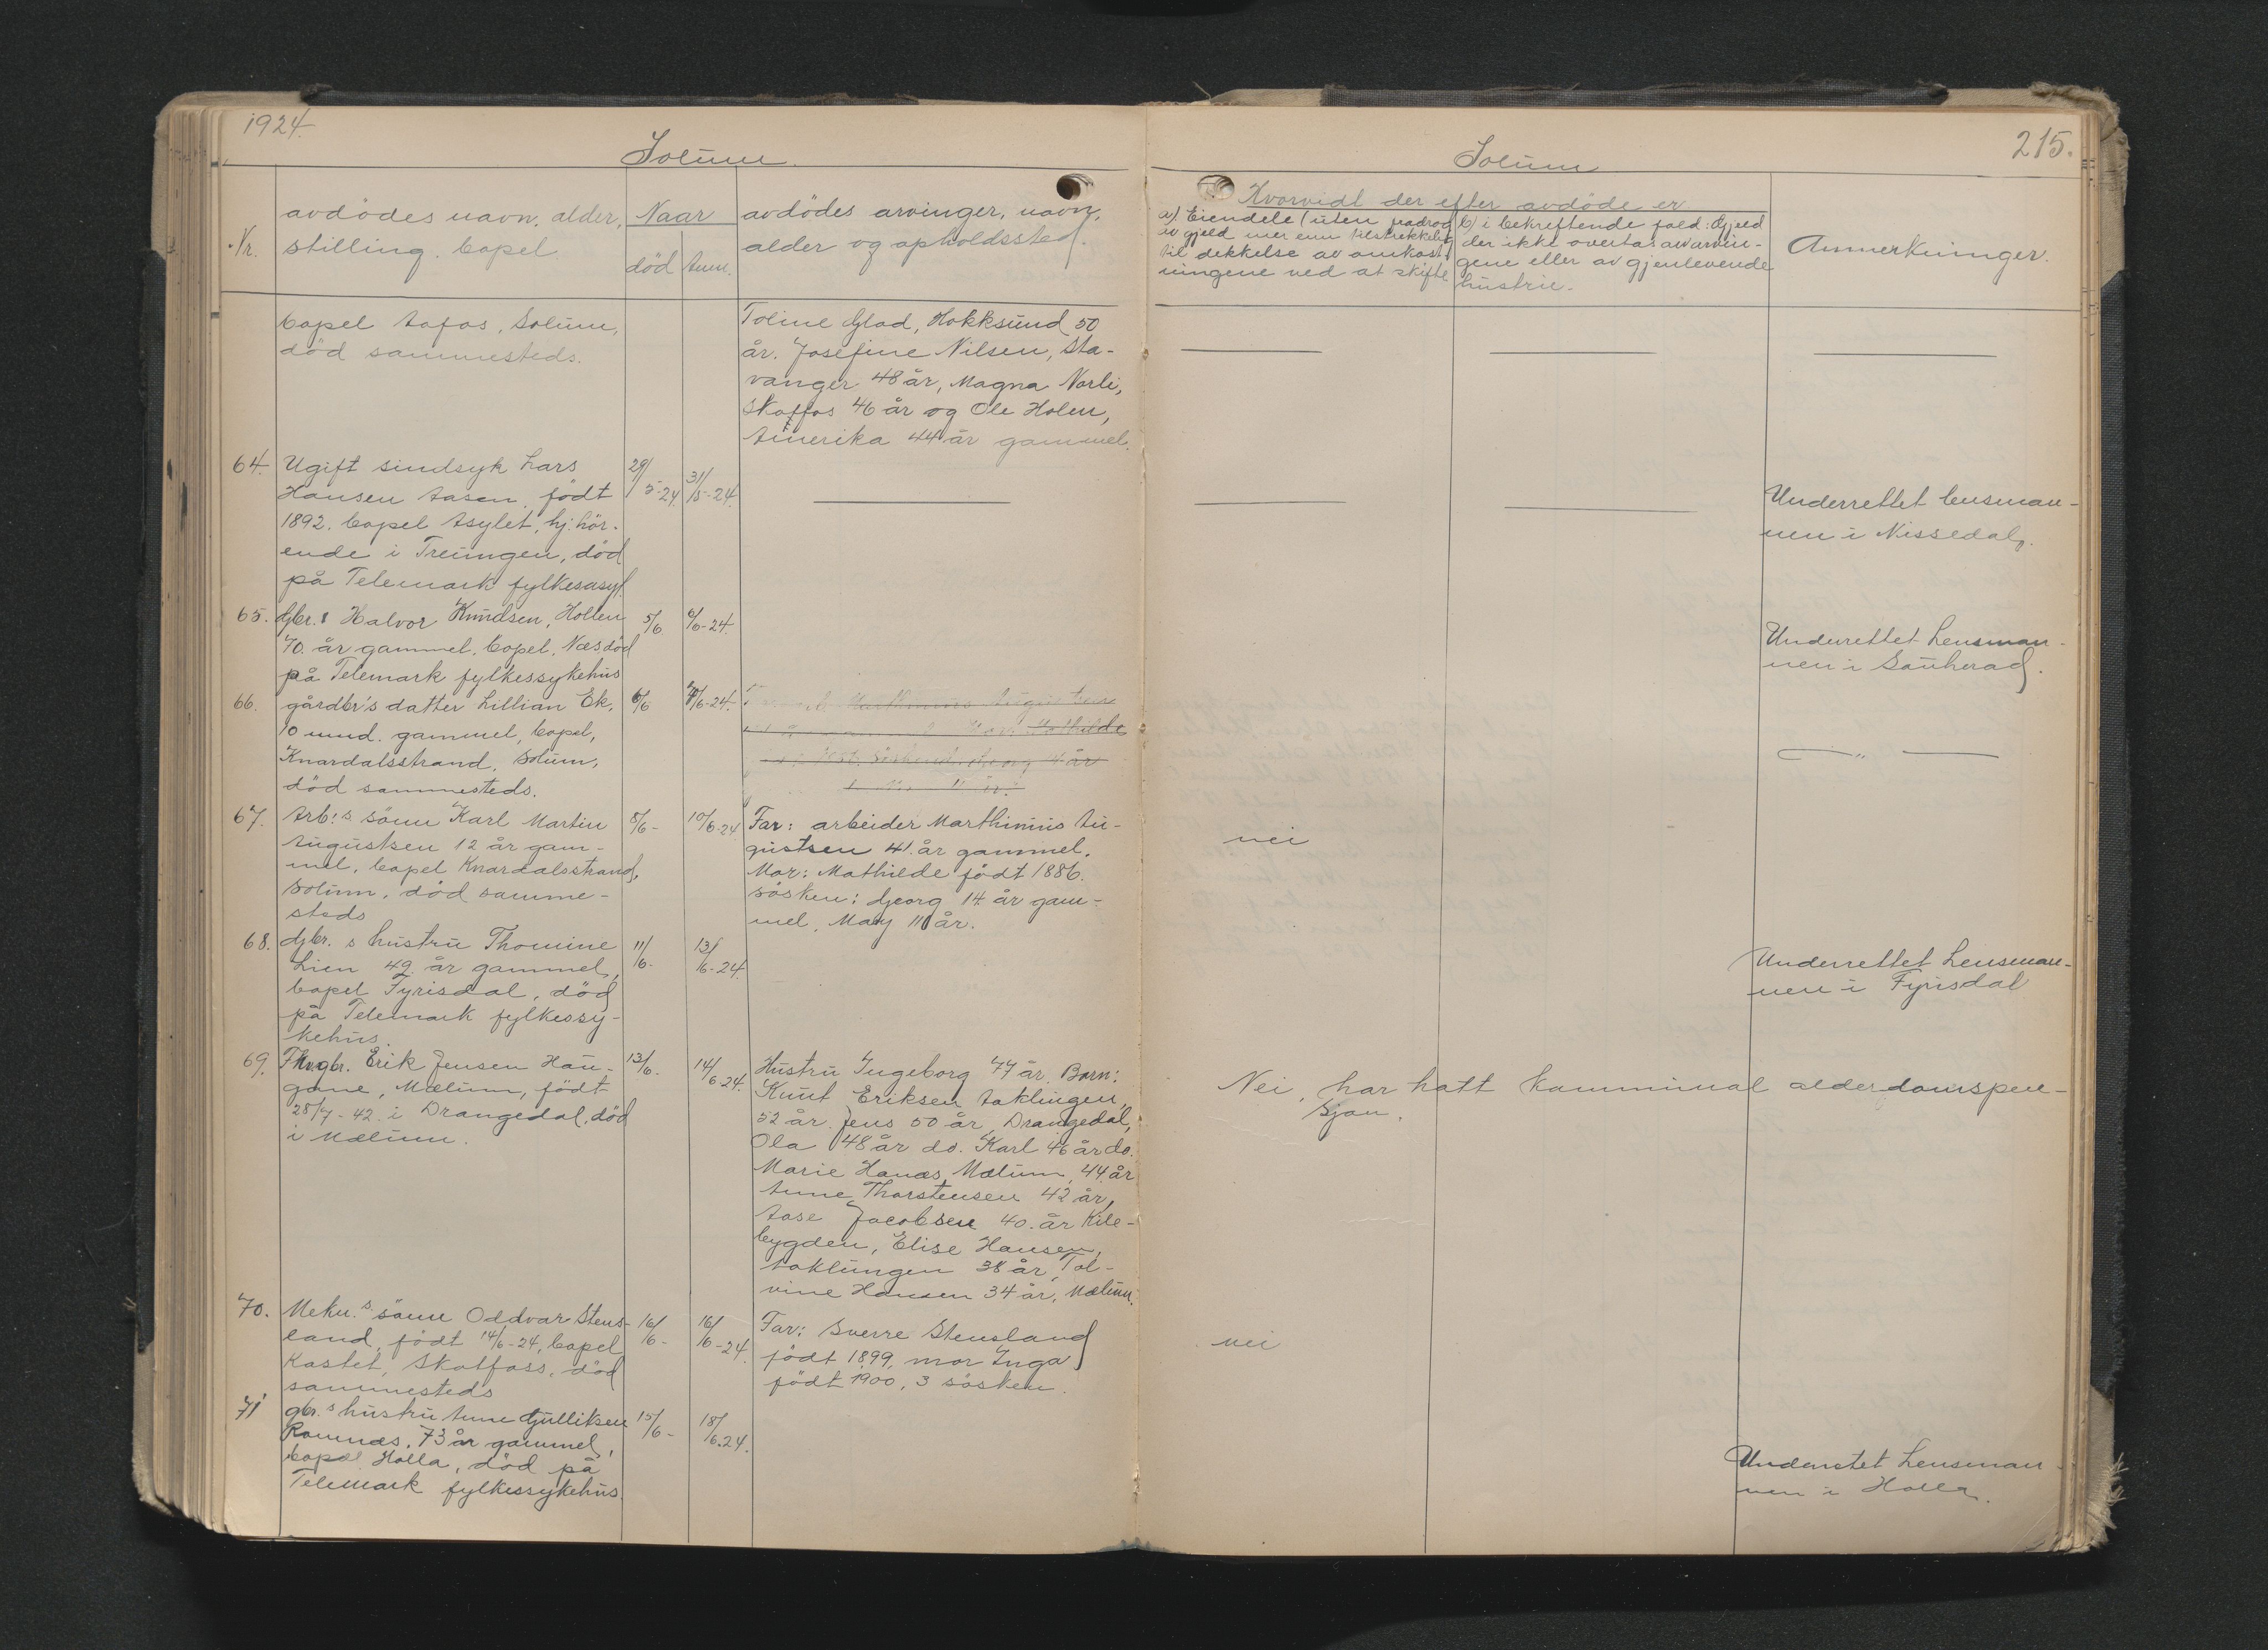 1924.
Solum.
Nr.
avdödes navn, alder,
stilling, bopel
Naar
död
anm.
avdödes arvinger, navn,
alder og opholdssted.
bopel Aafos, Solum,
död sammesteds.
Toline Glad, Hokksund 50
år. Josefine Nilsen, Sta-
vanger 48 år, Magna Norli,
Skotfos 46 år og Ole Holen,
Amerika 44 år gammel.
64.
Ugift sindsyk Lars
Hansen Aasen, født
1892. bopel Asylet, hj. hör-
ende i Treungen, död
på Telemark fylkesasyl.
29/5-24.
31/5-24.
65.
Gbr. Halvor Knudsen, Holten
70. år gammel. bopel. Næs, död
på Telemark fylkessykehus
5/6
6/6-24.
66.
gårdbr's datter Lillian Ek,
10 mnd. gammel, bopel,
Knardalsstrand, Solum,
död sammesteds.
6/6
7/6-24.
Marthinius Augustsen
Mathilde
Søskend: Georg 14 år
11 år.
67.
Arb.s sönn Karl Martin
Augustsen 12 år gam-
mel, bopel Knardalsstrand,
Solum, död samme-
steds
8/6-
10/6-24
Far: arbeider Marthinius Au-
gustsen 41. år gammel.
Mor: Mathilde födt 1886.
søsken: Georg 14 år gam-
mel, May 11 år.
68.
Gbr.s hustru Thomine
Lien 49 år gammel,
bopel Fyrisdal, död
på Telemark fylkessy-
kehus.
11/6-
13/6-24.
69.
Fhv. gbr. Erik Jensen Hau-
gane, Mælum, født
28/7-42. i Drangedal, död
i Mælum.
13/6.
14/6 24.
Hustru Ingeborg 77 år. Barn:
Knut Eriksen Aaklungen,
52 år. Jens 50 år, Drangedal,
Ola 48 år do. Karl 46 år do.
Marie Hanæs, Mælum, 44. år
Anne Thorstensen 42 år,
Aase Jacobsen 40. år Kile-
bygden, Elise Hansen,
Aaklungen 38 år, Tol-
vine Hansen 34 år, Mælum.
70.
Mekn.s sönn Oddvar Stens-
land, født 14/6-24, bopel
Kastet, Skotfoss, død
sammesteds
16/6-
16/6-24.
Far: Sverre Stensland
født 1899, mor Inga
født 1900, 3 søsken.
71
gbr.s hustru Anne Gulliksen
Romnæs, 73 år gammel,
bopel Holla, död på
Telemark fylkessykehus.
15/6-
18/6.24.
215.
Solum
Hvorvidt der efter avdöde er
a) Eiendele (uten fradrag
av gjæld mer enn tilstrekkelig
til dekkelse av omkost-
ningene ved at skifte
b) i bekreftende fald: Gjæld
der ikke overtas av arvin-
gene eller av gjenlevende
hustru.
Anmerkninger.
Underrettet lensman-
nen i Nissedal.
Underrettet Lensman-
nen i Sauherad.
— „ —
nei
Underrettet Lensman-
nen i Fyrisdal
Nei, har hatt kommunal alderdomspen-
sjon.
nei
Underrettet Lensman-
nen i Holla.